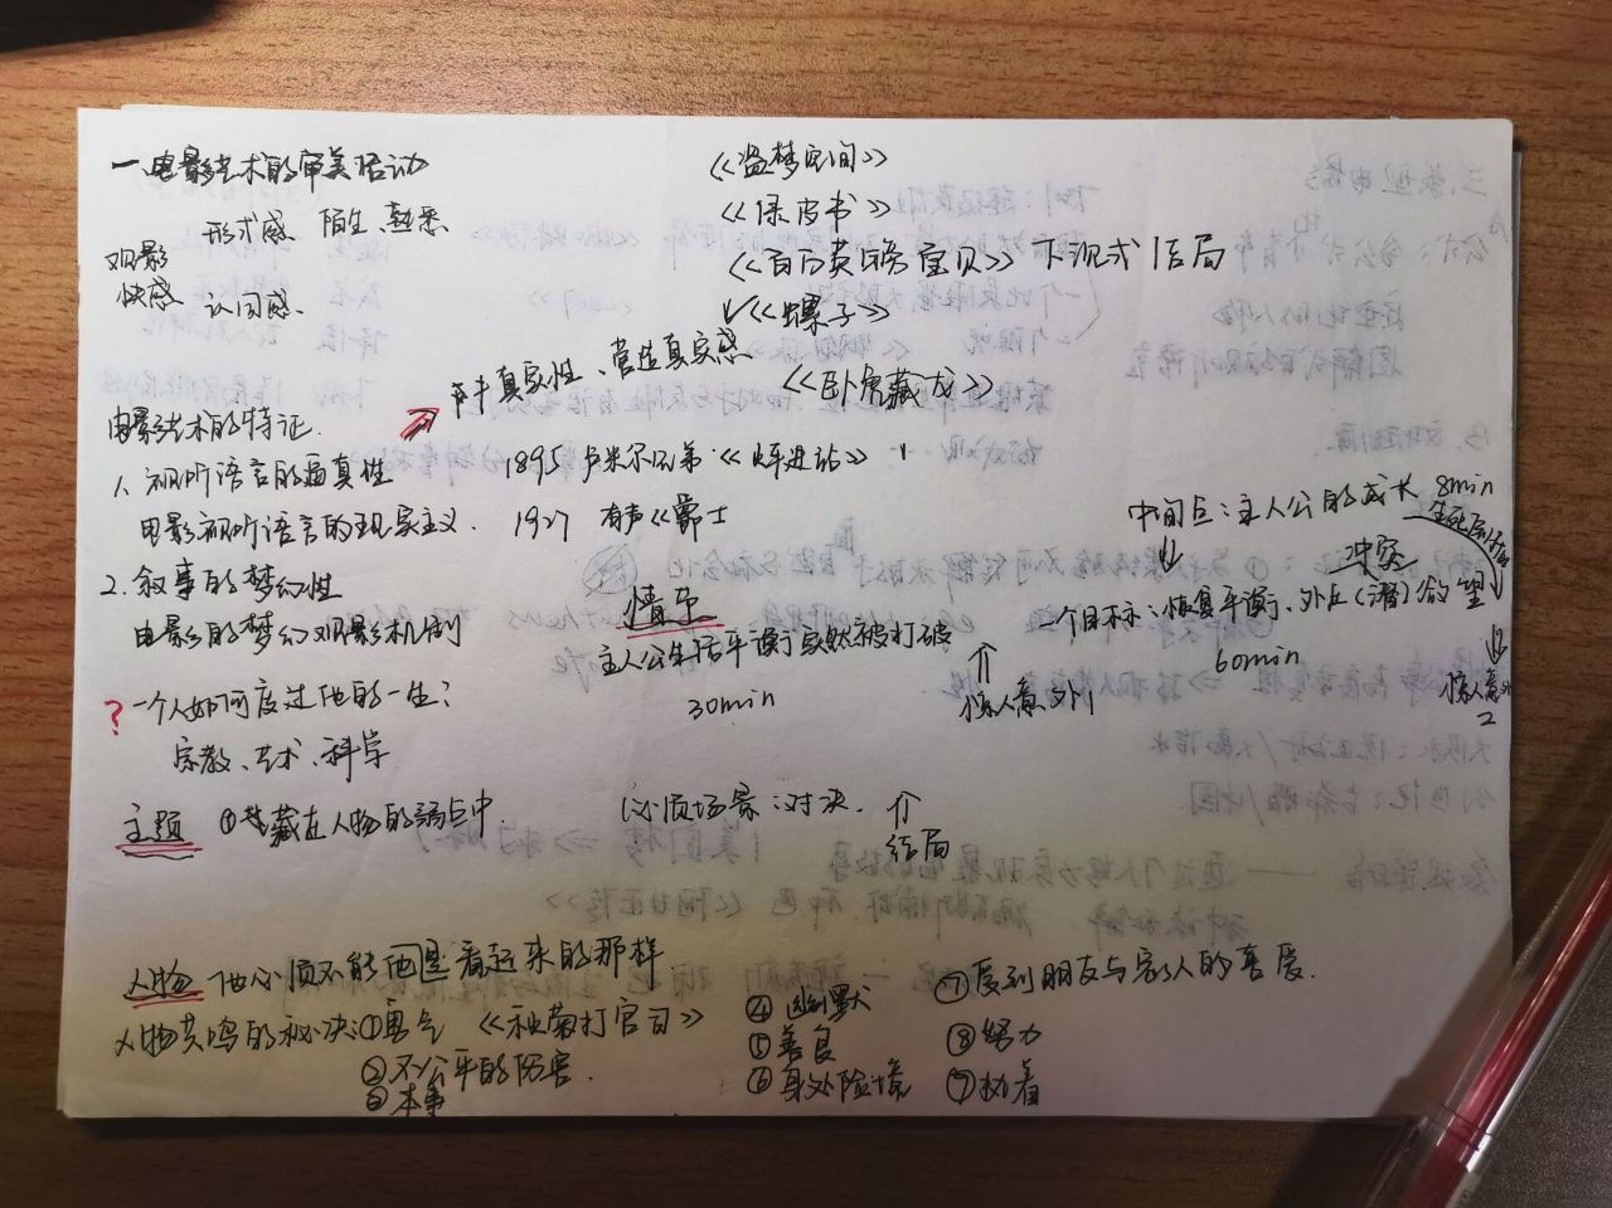 一、电影艺术的审美活动
观影快感
形式感 陌生、熟悉
认同感、
《盗梦空间》
《绿皮书》
《百万英镑宝贝》 下沉式结局
《螺子》
《卧虎藏龙》
真实性、营造真实感
电影艺术的特征.
1、视听语言的逼真性
电影视听语言的现实主义.
1895 卢米尔兄弟《火车进站》
1927 有声《爵士
2.叙事的梦幻性
电影的梦幻观影机制
? 一个人如何度过他的一生?
宗教、艺术、科学
主题 ①埋藏在人物的弱点中.
情节
主人公生活平衡突然被打破
30min
惊人意外1
中间点:主人公的成长 8min
冲突
一个目标:恢复平衡、外在(潜)欲望
60min
惊人意外2
必须场景:对决.
结局
人物 他必须不能他是看起来的那样.
人物共鸣的秘决:①勇气 《秋菊打官司》
②不公平的伤害.
③本事
④幽默
⑤善良
⑥身处险境
⑦受到朋友与家人的喜爱.
⑧努力
⑦执着